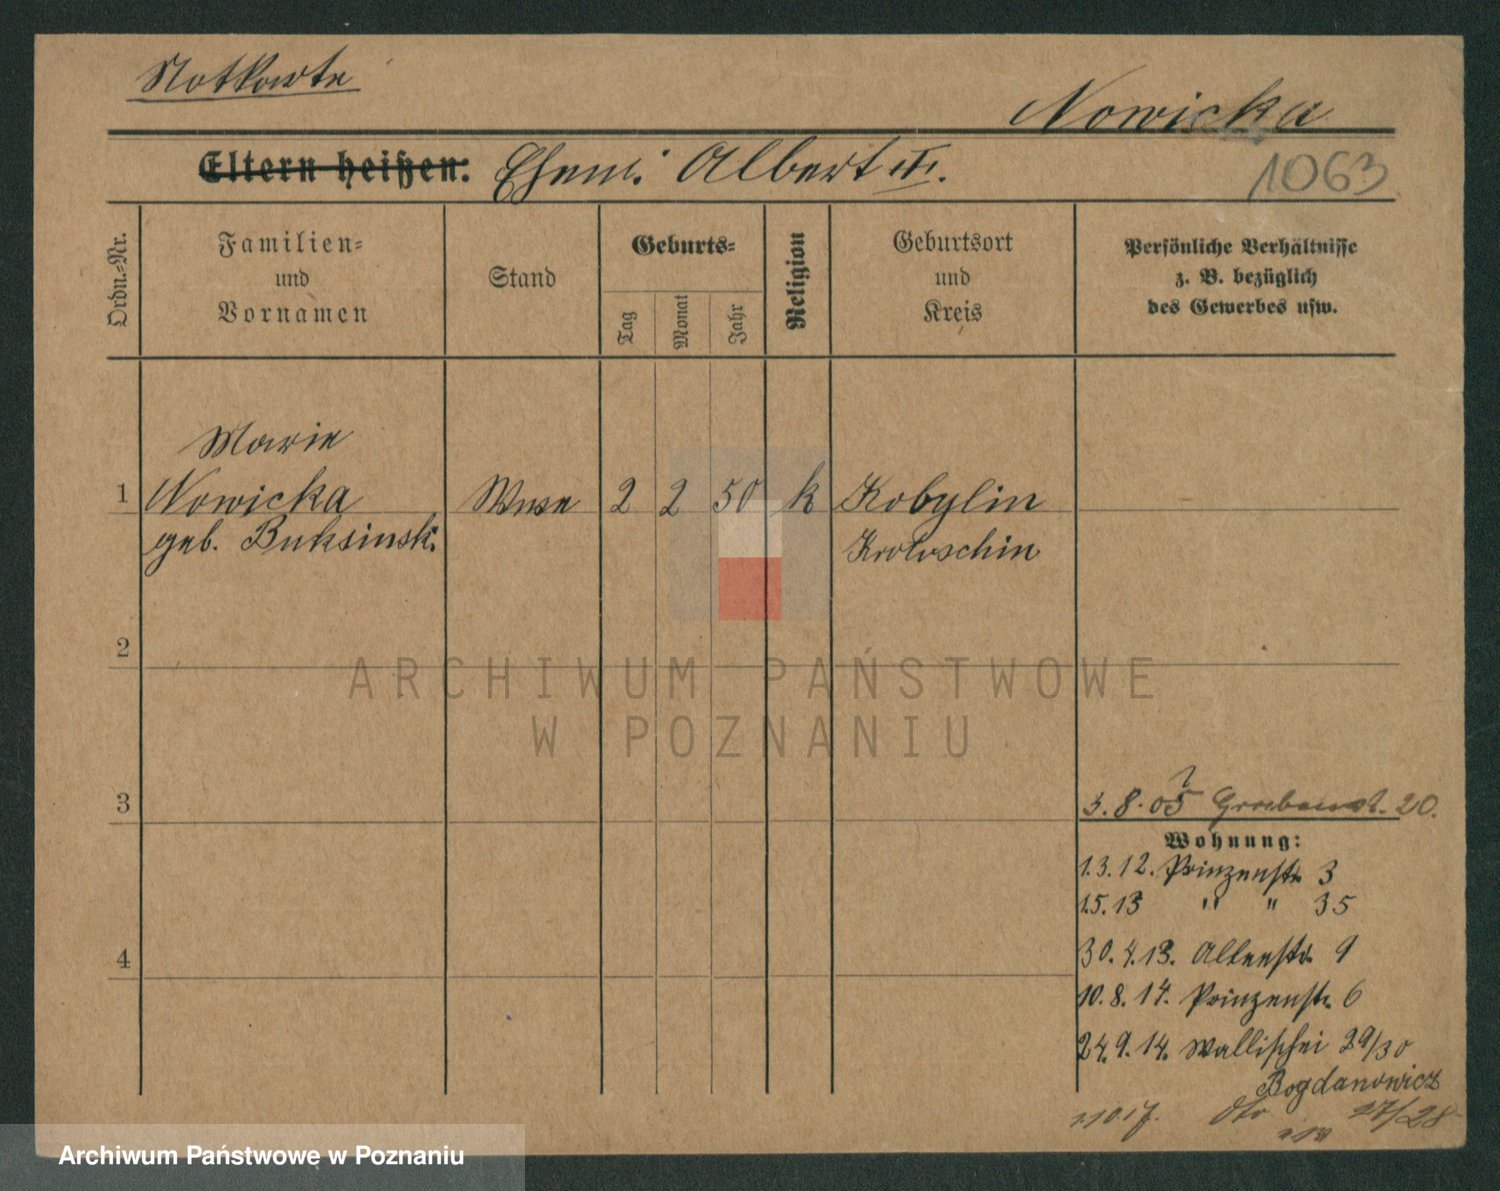 Notkarte
Nowicka
Eltern heißen: Ehem. Albert III.
1063
Ordn.-Nr.
Familien-
und
Vornamen
Stand
Geburts-
Tag
Monat
Jahr
Religion
Geburtsort
und
Kreis
Persönliche Verhältnisse
z. B. bezüglich
des Gewerbes usw.
Marie
1 Nowicka Wwe 2 2 50 k Kobylin
geb. Buksinsk. Krotoschin
2
3
3.8.05 Grabenst. 20.
Wohnung:
1.3.12. Prinzenstr. 3
1.5.13 " " 35
4
30.4.13. Alleestr. 9
10.8.14. Prinzenstr. 6
24.9.14. Wallischei 29/30
Bogdanowicz
27/28
ARCHIWUM PAŃSTWOWE
W POZNANIU
Archiwum Państwowe w Poznaniu